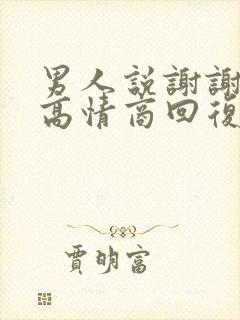 男人說謝謝
高情商回復
賈明富